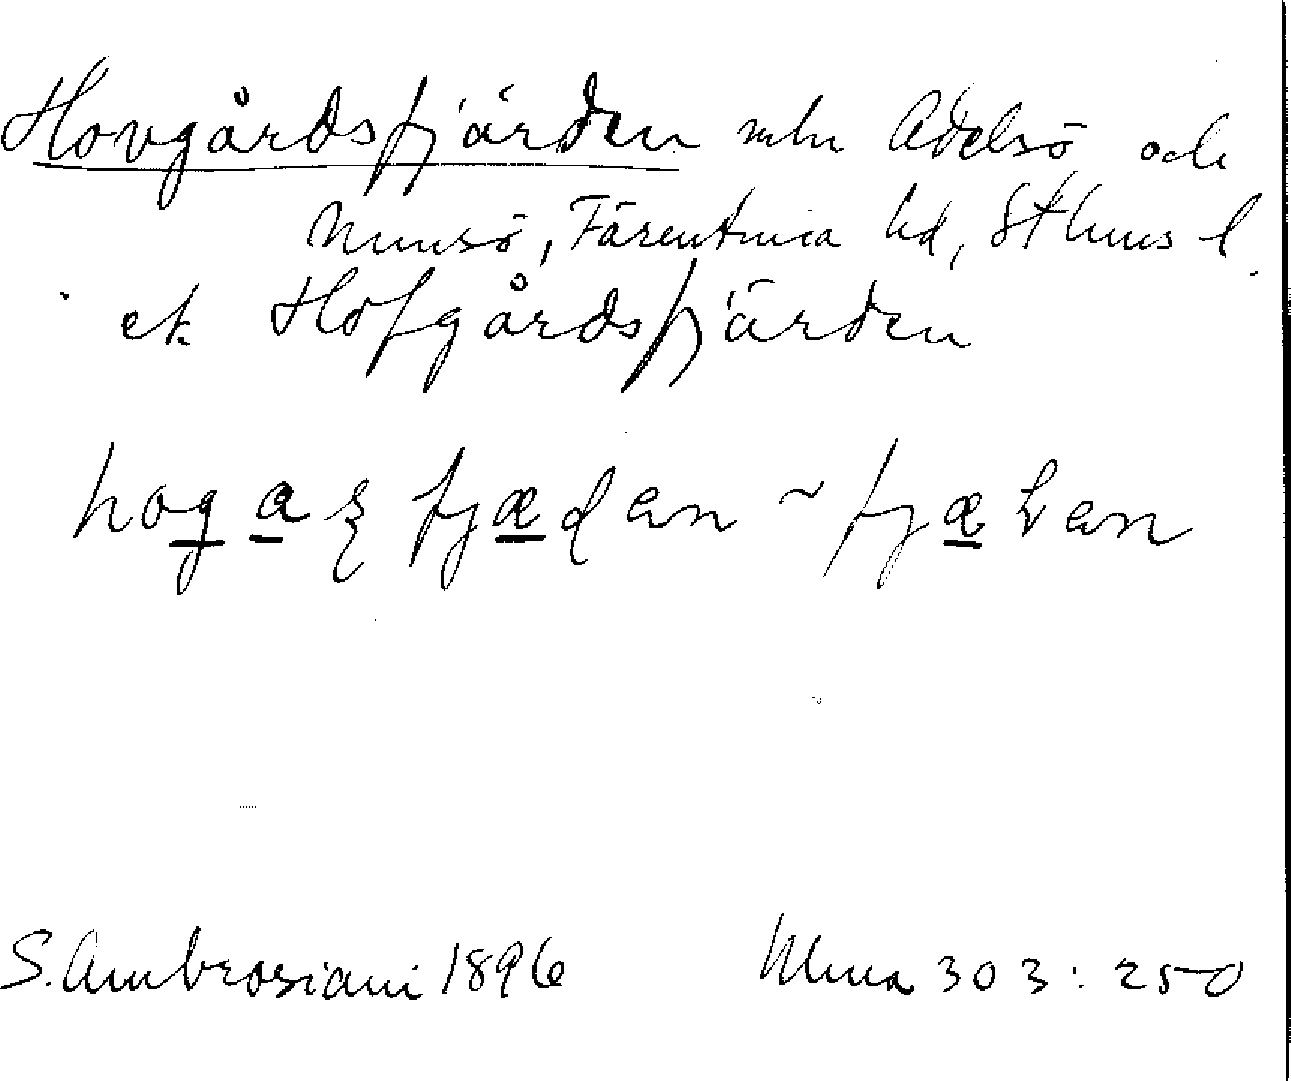 Hovgårdsfjärden mln Adelsö och
Munsö, Färentuna hd, Sthlms l.
ek Hofgårdsfjärden
S. Ambrosiani 1896 Ulma 303:250